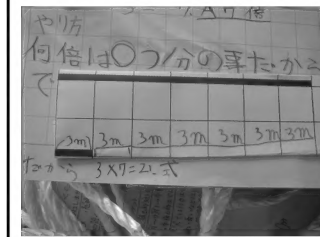 A 7倍
やり方
何倍は○つ分の事だから
で
3m 3m 3m 3m 3m 3m 3m
だから 3×7=21. 式